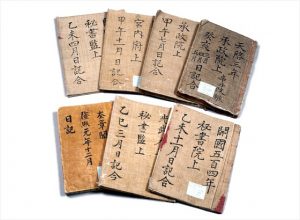 天啓三年
承政院上
日記合
承政院上
日記合
宮內府上
甲午十一月日記合
秘書監上
乙未四月日記合
開國五百四年
秘書院上
乙未十一月日記合
秘書監上
乙巳三月日記合
奎章閣
隆熙元年十二月
日記